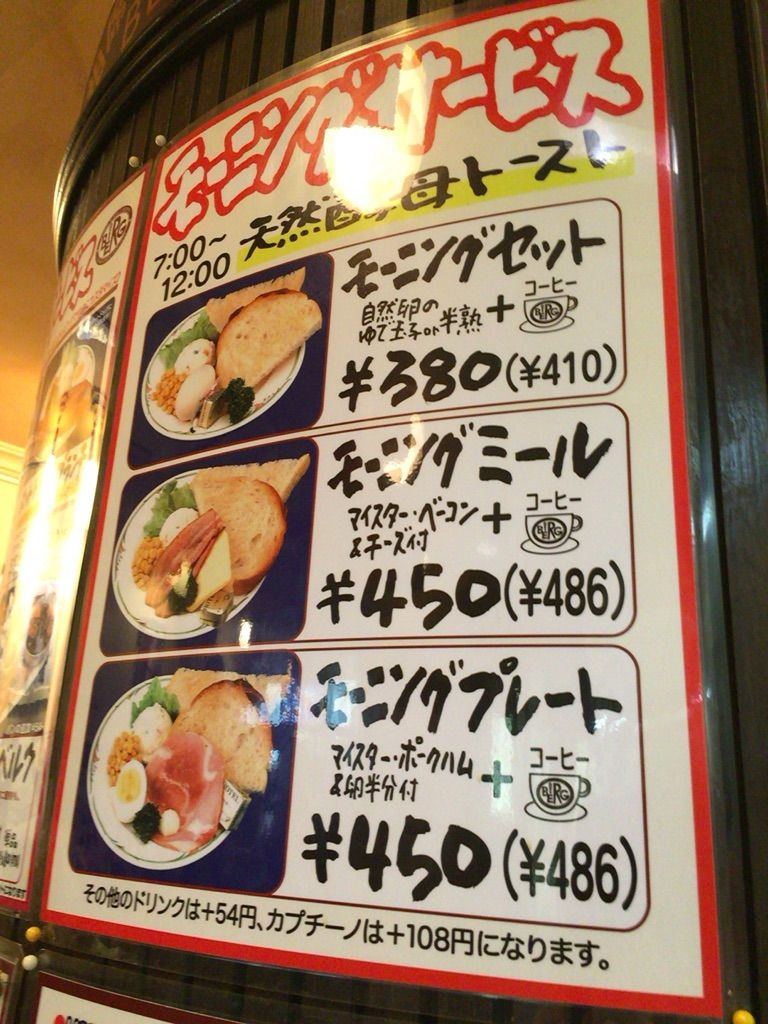 モーニングサービス
7:00～
12:00
天然酵母トースト
モーニングセット
自然卵の
ゆで玉子or半熟
+
コーヒー
BERG
¥380(¥410)
モーニングミール
マイスター・ベーコン
&チーズ付
+
コーヒー
BERG
¥450(¥486)
モーニングプレート
マイスター・ポークハム
&卵半分付
+
コーヒー
BERG
¥450(¥486)
その他のドリンクは+54円、カプチーノは+108円になります。
BERG
ベルク